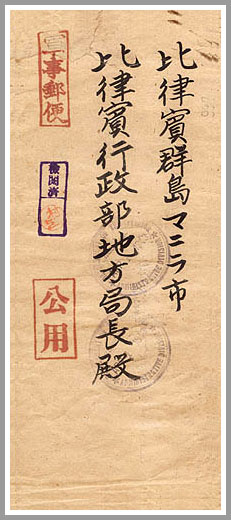 比律賓群島マニラ市
比律賓行政部地方局長殿
軍事郵便
検閲済
公用